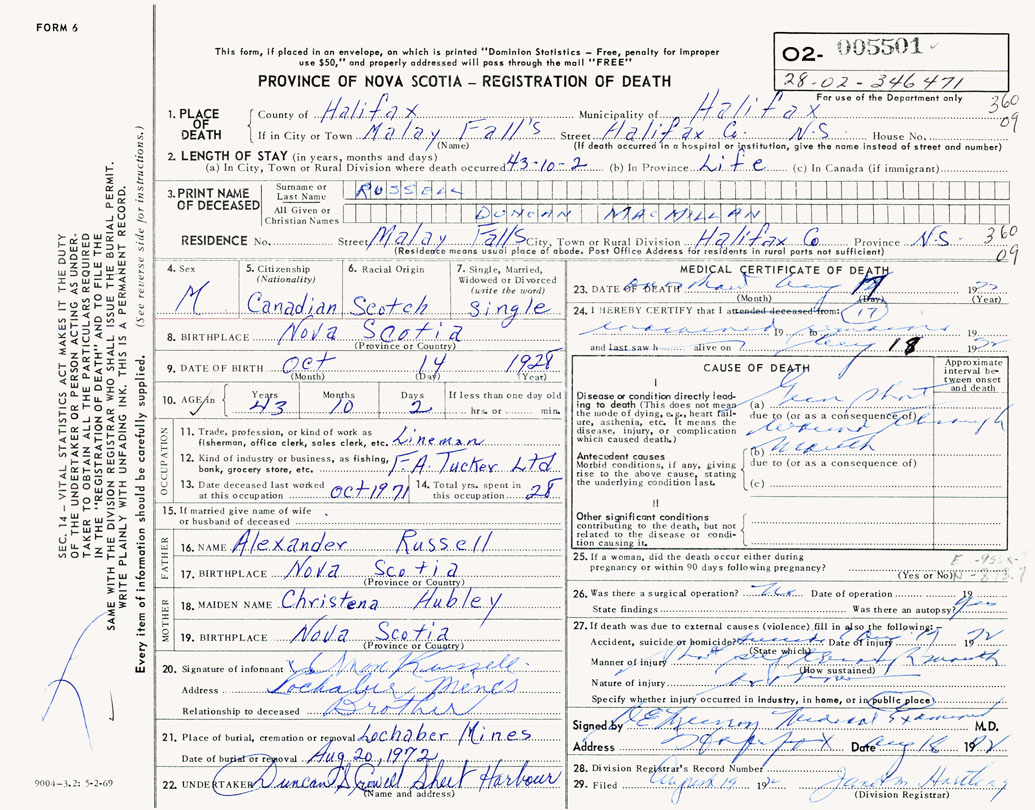 FORM 6
This form, if placed in an envelope, on which is printed "Dominion Statistics – Free, penalty for improper
use $50," and properly addressed will pass through the mail "FREE"
PROVINCE OF NOVA SCOTIA – REGISTRATION OF DEATH
02- 005501
28-02-346471
For use of the Department only
360
09
1. PLACE OF DEATH County of Halifax Municipality of Halifax
If in City or Town Malay Fall's Street Halifax Co. N.S. House No.
(Name) (If death occurred in a hospital or institution, give the name instead of street and number)
2. LENGTH OF STAY (in years, months and days)
(a) In City, Town or Rural Division where death occurred 43-10-2 (b) In Province Life (c) In Canada (if immigrant)
3. PRINT NAME OF DECEASED Surname or Last Name RUSSELL
All Given or Christian Names DUNCAN MACMILLAN
RESIDENCE No. Street Malay Falls City, Town or Rural Division Halifax Co Province N.S. 360
09
(Residence means usual place of abode. Post Office Address for residents in rural parts not sufficient)
4. Sex M
5. Citizenship (Nationality) Canadian
6. Racial Origin Scotch
7. Single, Married, Widowed or Divorced (write the word) Single
8. BIRTHPLACE Nova Scotia
(Province or Country)
9. DATE OF BIRTH Oct 14 1928
(Month) (Day) (Year)
10. AGE in Years 43 Months 10 Days 2 If less than one day old hrs. or min.
OCCUPATION
11. Trade, profession, or kind of work as fisherman, office clerk, sales clerk, etc. Lineman
12. Kind of industry or business, as fishing, bank, grocery store, etc. F.A. Tucker Ltd
13. Date deceased last worked at this occupation Oct 1971
14. Total yrs. spent in this occupation 28
15. If married give name of wife or husband of deceased
FATHER
16. NAME Alexander Russell
17. BIRTHPLACE Nova Scotia
(Province or Country)
MOTHER
18. MAIDEN NAME Christena Hubley
19. BIRTHPLACE Nova Scotia
(Province or Country)
20. Signature of informant x Russell
Address Lochaber Mines
Relationship to deceased Brother
21. Place of burial, cremation or removal Lochaber Mines
Date of burial or removal Aug 20, 1972
22. UNDERTAKER Duncan Sheet Harbour
(Name and address)
MEDICAL CERTIFICATE OF DEATH
23. DATE OF DEATH Aug 17 19
(Month) (Day) (Year)
24. I HEREBY CERTIFY that I attended deceased from: 17
examined 19 to remains 19
and last saw h alive on Aug 18 19 72
CAUSE OF DEATH
Approximate interval between onset and death
I
Disease or condition directly leading to death (This does not mean the mode of dying, e.g., heart failure, asthenia, etc. It means the disease, injury, or complication which caused death.)
(a) Gun shot
due to (or as a consequence of)
wound through
(b) mouth
Antecedent causes
Morbid conditions, if any, giving rise to the above cause, stating the underlying condition last.
due to (or as a consequence of)
(c)
II
Other significant conditions contributing to the death, but not related to the disease or condition causing it.
25. If a woman, did the death occur either during pregnancy or within 90 days following pregnancy?
(Yes or No)
26. Was there a surgical operation? No Date of operation 19
State findings Was there an autopsy? Yes
27. If death was due to external causes (violence) fill in also the following: –
Accident, suicide or homicide? Suicide Date of injury Aug 17 19 72
(State which)
Manner of injury Shot self through mouth
(How sustained)
Nature of injury
Specify whether injury occurred in industry, in home, or in public place
Signed by Medical Examiner M.D.
Address Halifax Date Aug 18 1972
28. Division Registrar's Record Number
29. Filed August 19 19 72
(Division Registrar)
SEC. 14 – VITAL STATISTICS ACT MAKES IT THE DUTY
OF THE UNDERTAKER OR PERSON ACTING AS UNDERTAKER TO OBTAIN ALL THE PARTICULARS REQUIRED
IN THE "REGISTRATION OF DEATH" AND TO FILE THE
SAME WITH THE DIVISION REGISTRAR WHO SHALL ISSUE THE BURIAL PERMIT.
WRITE PLAINLY WITH UNFADING INK. THIS IS A PERMANENT RECORD.
Every item of information should be carefully supplied. (See reverse side for instructions.)
9004-3.2: 5-2-69